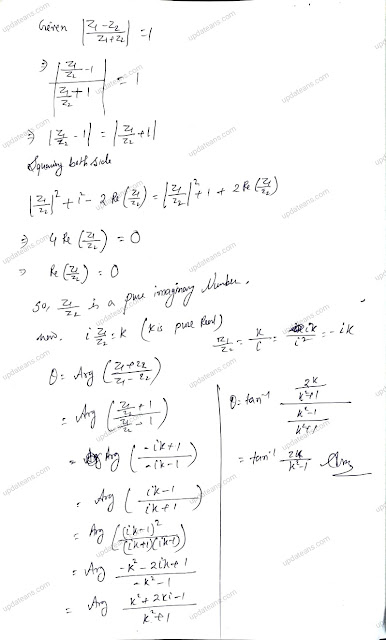 Given |(z₁ - z₂)/(z₁ + z₂)| = 1
⇒ |(z₁/z₂ - 1)/(z₁/z₂ + 1)| = 1
⇒ |z₁/z₂ - 1| = |z₁/z₂ + 1|
Squaring both side
|z₁/z₂|² + 1² - 2 Re(z₁/z₂) = |z₁/z₂|² + 1 + 2 Re(z₁/z₂)
⇒ 4 Re(z₁/z₂) = 0
⇒ Re(z₁/z₂) = 0
So, z₁/z₂ is a pure imaginary Number.
now. i z₁/z₂ = k (k is pure Real)
z₁/z₂ = k/i = ik/i² = -ik
θ = Arg((z₁ + z₂)/(z₁ - z₂))
= Arg((z₁/z₂ + 1)/(z₁/z₂ - 1))
= Arg((-ik + 1)/(-ik - 1))
= Arg((ik - 1)/(ik + 1))
= Arg((ik - 1)²/((ik + 1)(ik - 1)))
= Arg (-k² - 2ik + 1)/(-k² - 1)
= Arg (k² + 2ki - 1)/(k² + 1)
θ = tan⁻¹ (2k/(k² + 1))/((k² - 1)/(k² + 1))
= tan⁻¹ 2k/(k² - 1) Ans
updateans.com